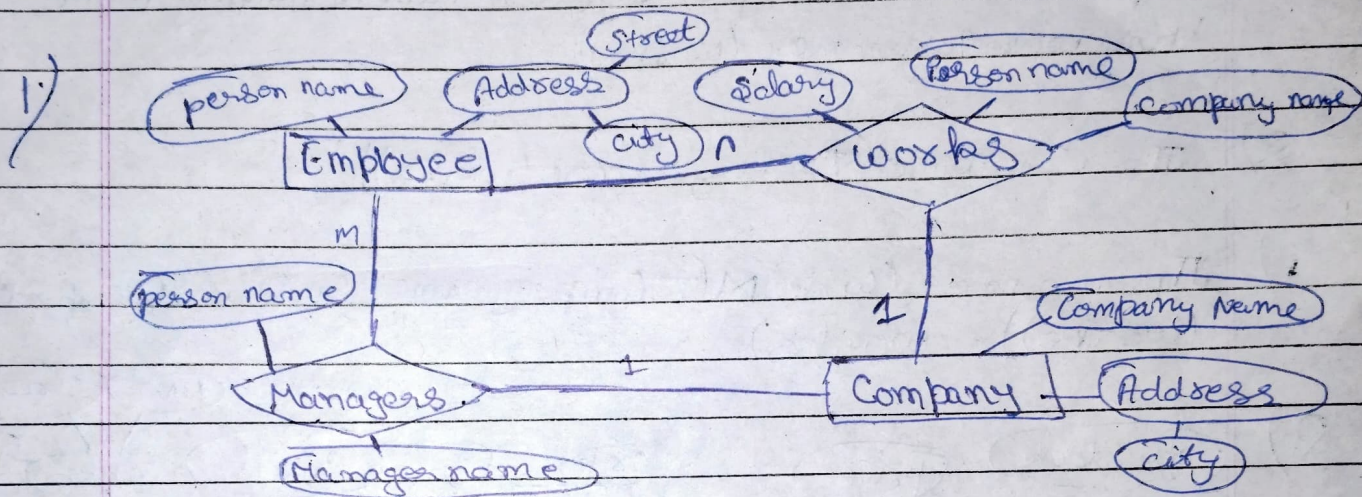 1)
Street
person name Address Salary Person name Company name
Employee city n works
m
person name
1 Company Name
1
Managers Company Address
Manager name city